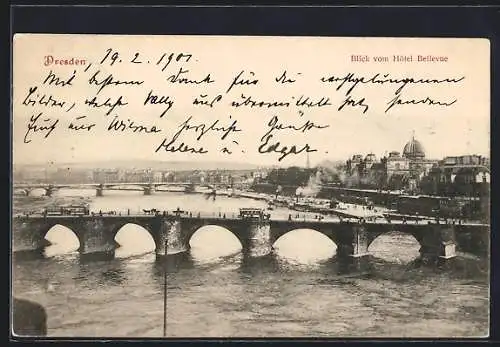 Dresden, 19. 2. 1901.
Blick vom Hôtel Bellevue
Mit bestem Dank für die wohlgelungenen
Bilder, welche Willy uns übermittelt hat, senden
Euch aus Wilma herzliche Grüße
Helene u. Edgar